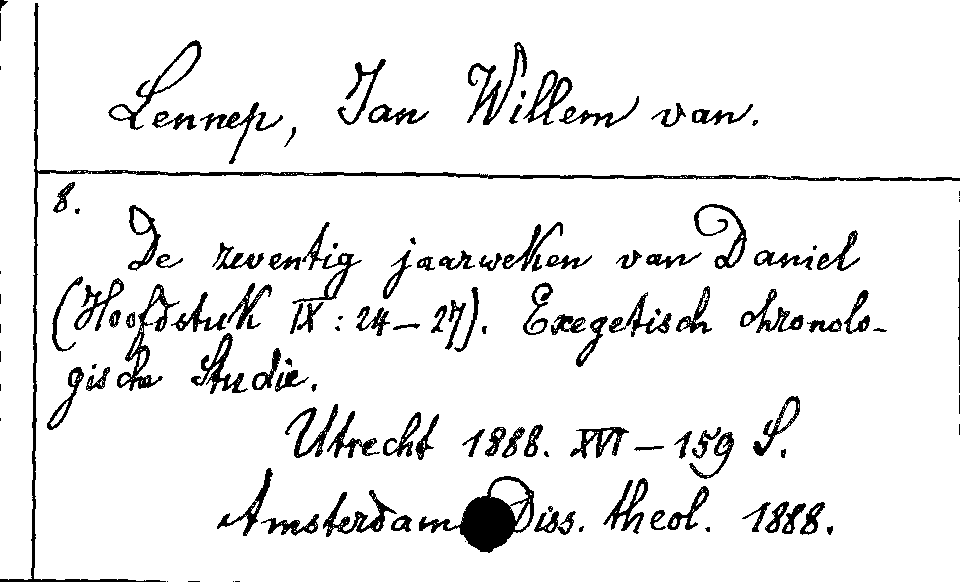 Lennep, Jan Willem van.
8.
De zeventig jaarweken van Daniel
(Hoofdstuk IX : 24 – 27). Exegetisch chronolo-
gische Studie.
Utrecht 1888. XVI – 159 S.
Amsterdam Diss. theol. 1888.